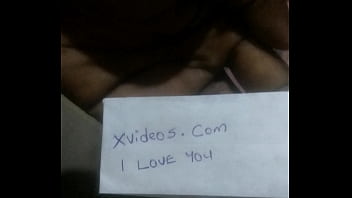 Xvideos. Com
I LOVE YOU